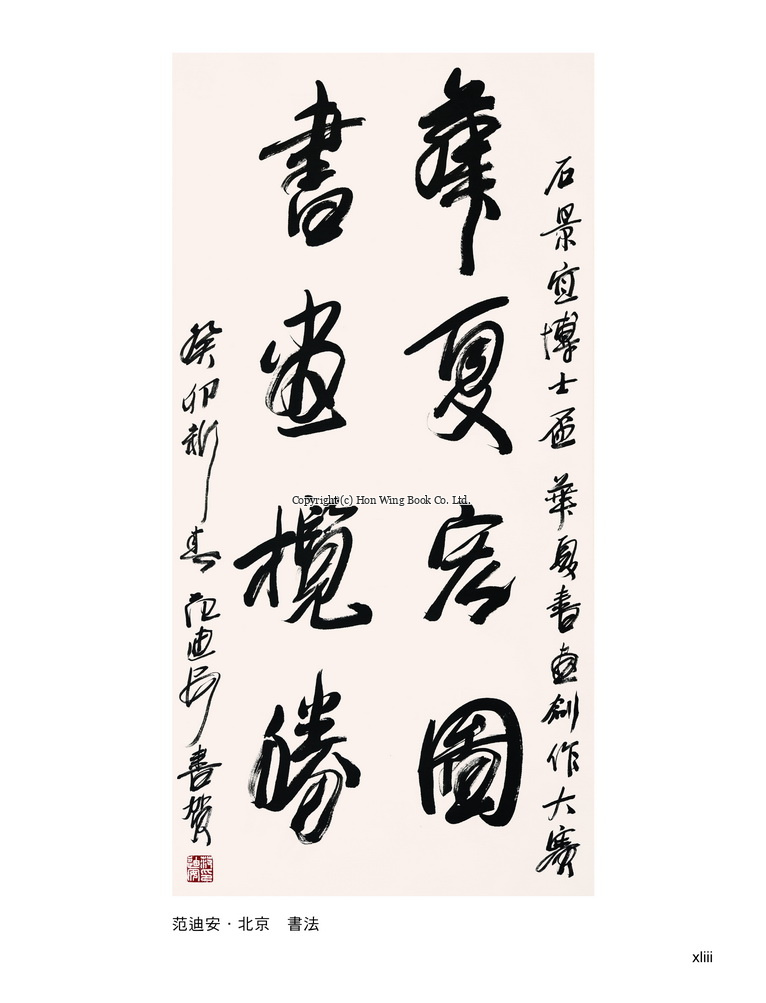 石景宜博士盃 華夏書畫創作大賽
華夏宏圖
書畫攬勝
癸卯新春 范迪安書賀
Copyright (c) Hon Wing Book Co. Ltd.
范迪安·北京　書法
xliii